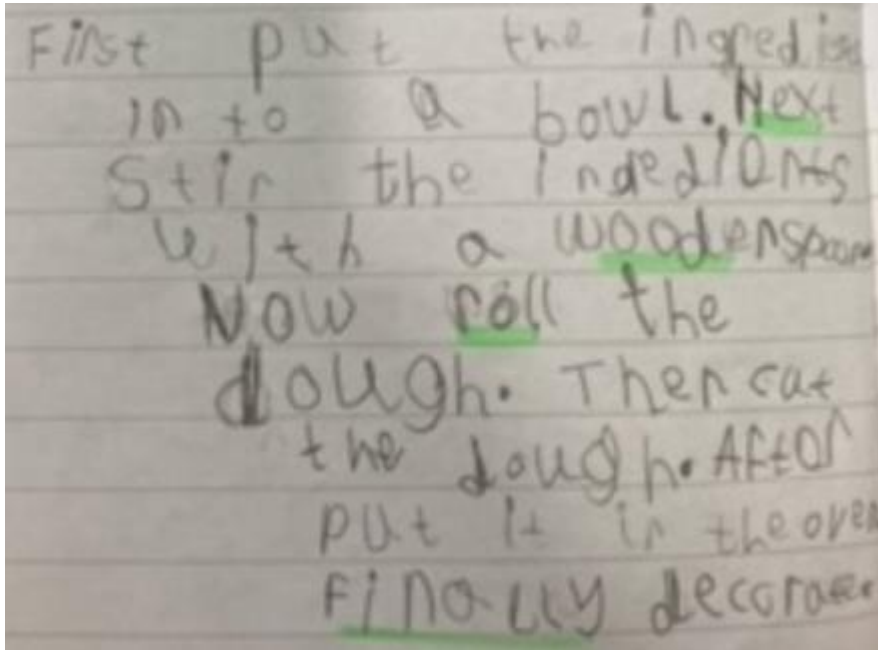 First put the ingredien
in to a bowl. Next
Stir the ingedients
with a wooden spoon
Now roll the
dough. Then cut
the dough. After
put it in the oven
Finally decorate